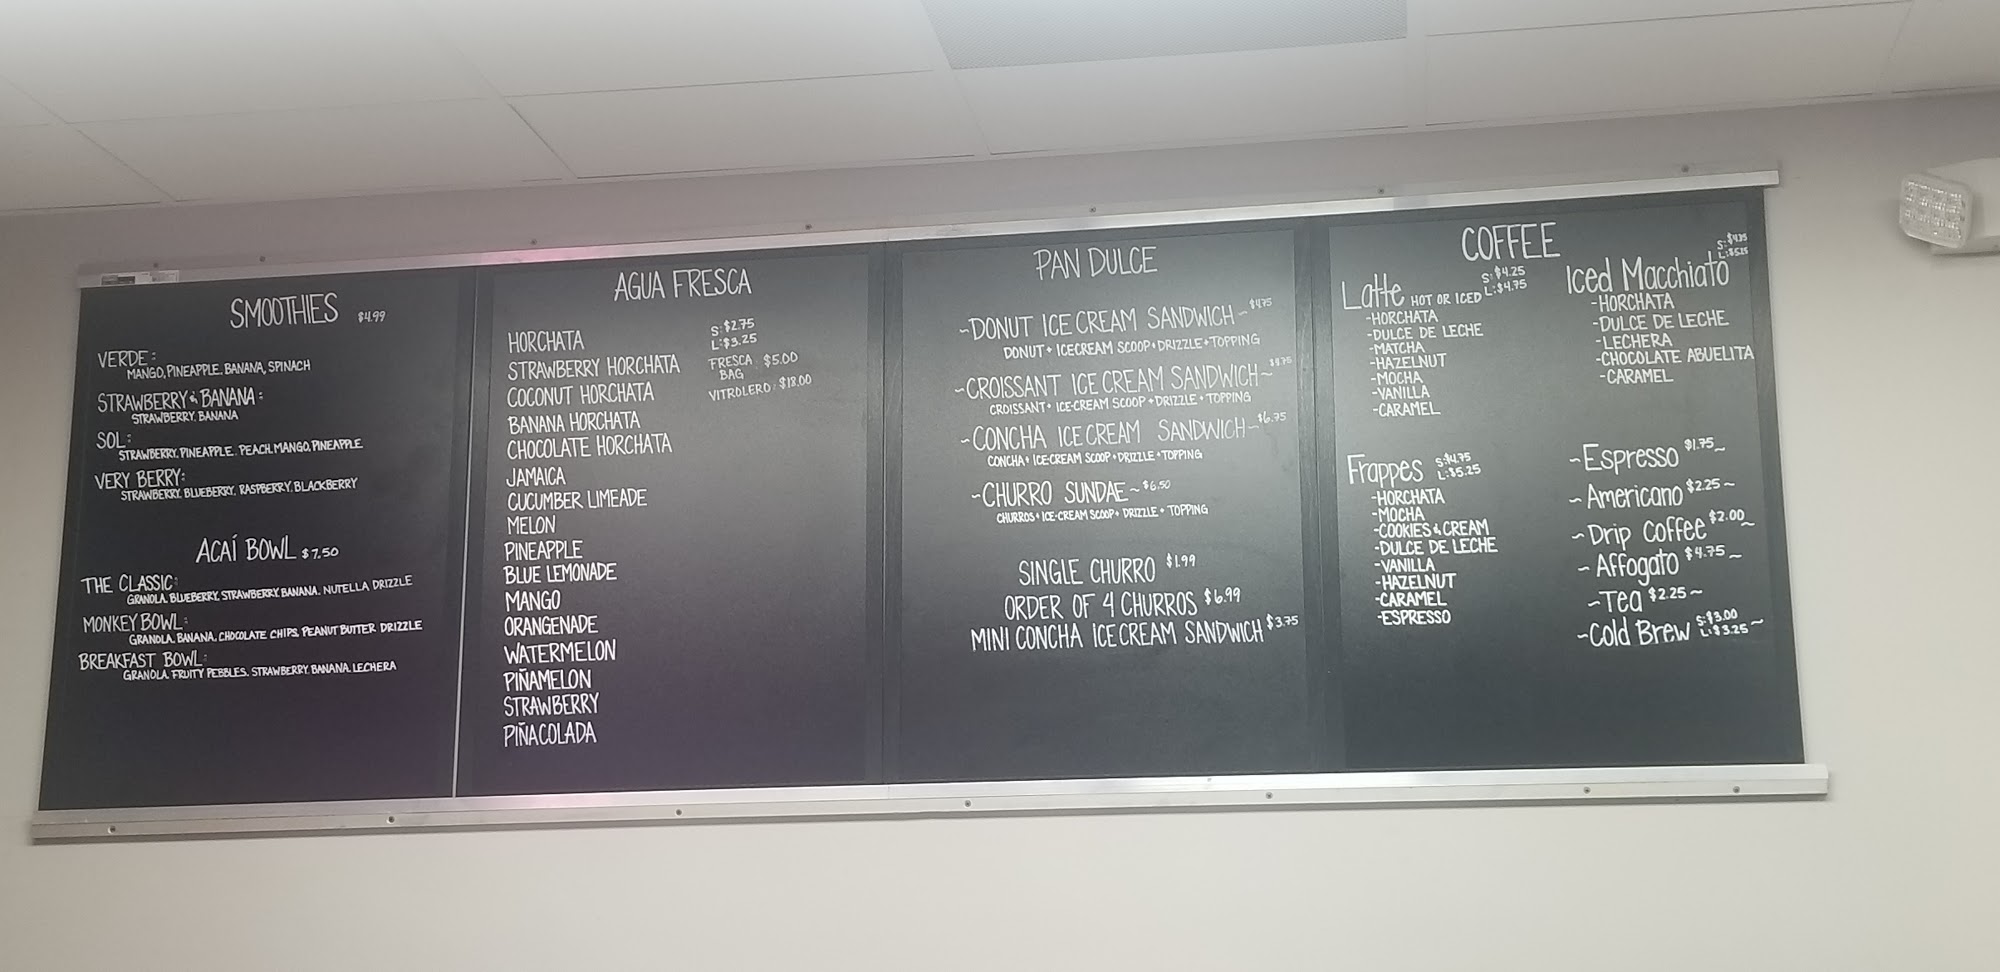 SMOOTHIES $4.99
VERDE:
MANGO, PINEAPPLE, BANANA, SPINACH
STRAWBERRY & BANANA:
STRAWBERRY, BANANA
SOL:
STRAWBERRY, PINEAPPLE, PEACH, MANGO, PINEAPPLE
VERY BERRY:
STRAWBERRY, BLUEBERRY, RASPBERRY, BLACKBERRY
ACAÍ BOWL $7.50
THE CLASSIC:
GRANOLA, BLUEBERRY, STRAWBERRY, BANANA, NUTELLA DRIZZLE
MONKEY BOWL:
GRANOLA, BANANA, CHOCOLATE CHIPS, PEANUT BUTTER DRIZZLE
BREAKFAST BOWL:
GRANOLA, FRUITY PEBBLES, STRAWBERRY, BANANA, LECHERA
AGUA FRESCA
S: $2.75
L: $3.25
FRESCA BAG $5.00
VITROLERO: $18.00
HORCHATA
STRAWBERRY HORCHATA
COCONUT HORCHATA
BANANA HORCHATA
CHOCOLATE HORCHATA
JAMAICA
CUCUMBER LIMEADE
MELON
PINEAPPLE
BLUE LEMONADE
MANGO
ORANGENADE
WATERMELON
PIÑAMELON
STRAWBERRY
PIÑACOLADA
PAN DULCE
~DONUT ICE CREAM SANDWICH~ $4.75
DONUT + ICECREAM SCOOP + DRIZZLE + TOPPING
~CROISSANT ICE CREAM SANDWICH~
CROISSANT + ICE-CREAM SCOOP + DRIZZLE + TOPPING
~CONCHA ICE CREAM SANDWICH~ $6.75
CONCHA + ICE-CREAM SCOOP + DRIZZLE + TOPPING
~CHURRO SUNDAE~ $6.50
CHURROS + ICE-CREAM SCOOP + DRIZZLE + TOPPING
SINGLE CHURRO $1.99
ORDER OF 4 CHURROS $6.99
MINI CONCHA ICE CREAM SANDWICH $3.75
COFFEE
Latte HOT OR ICED S: $4.25
L: $4.75
-HORCHATA
-DULCE DE LECHE
-MATCHA
-HAZELNUT
-MOCHA
-VANILLA
-CARAMEL
Frappes S: $4.75
L: $5.25
-HORCHATA
-MOCHA
-COOKIES & CREAM
-DULCE DE LECHE
-VANILLA
-HAZELNUT
-CARAMEL
-ESPRESSO
Iced Macchiato S: $4.75
L: $5.25
-HORCHATA
-DULCE DE LECHE
-LECHERA
-CHOCOLATE ABUELITA
-CARAMEL
~Espresso $1.75~
~Americano $2.25~
~Drip Coffee $2.00~
~Affogato $4.75~
~Tea $2.25~
~Cold Brew S: $3.00
L: $3.25~